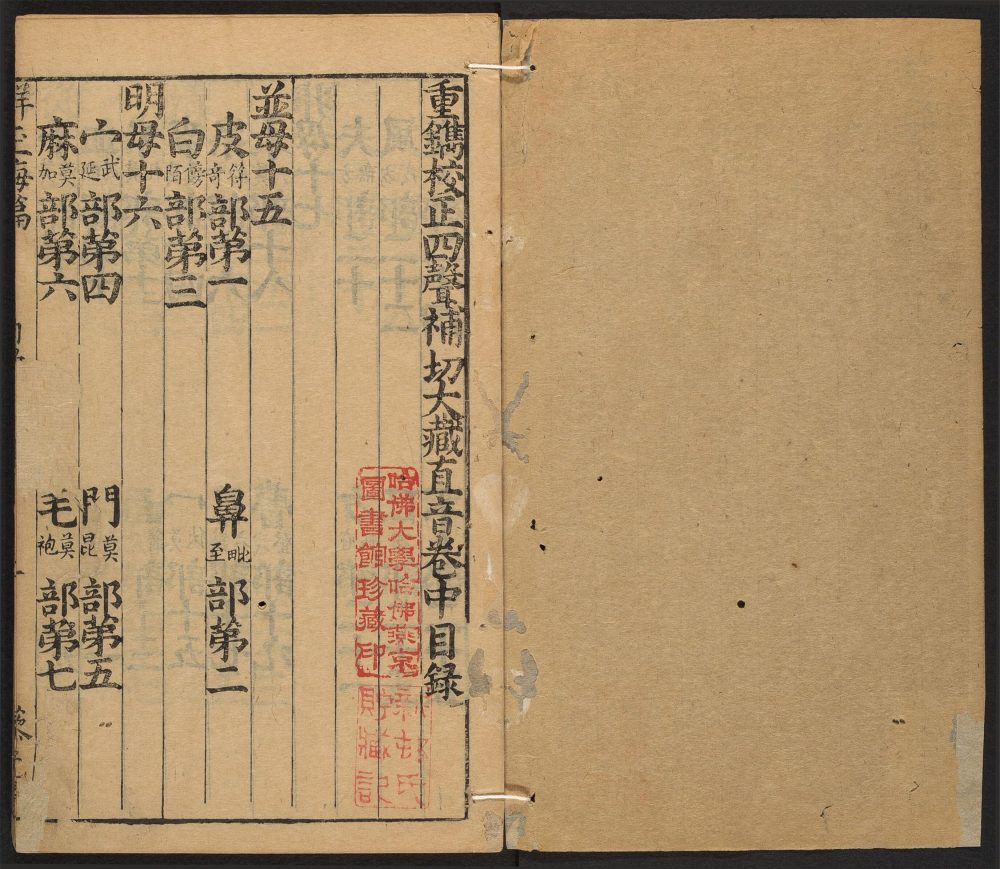 重鐫校正四聲補切大藏直音卷中目錄
並母十五
皮符奇部第一 鼻毗至部第二
白傍陌部第三
明母十六
宀武延部第四 門莫昆部第五
麻莫加部第六 毛莫袍部第七
哈佛大學哈佛燕京
圖書館珍藏印